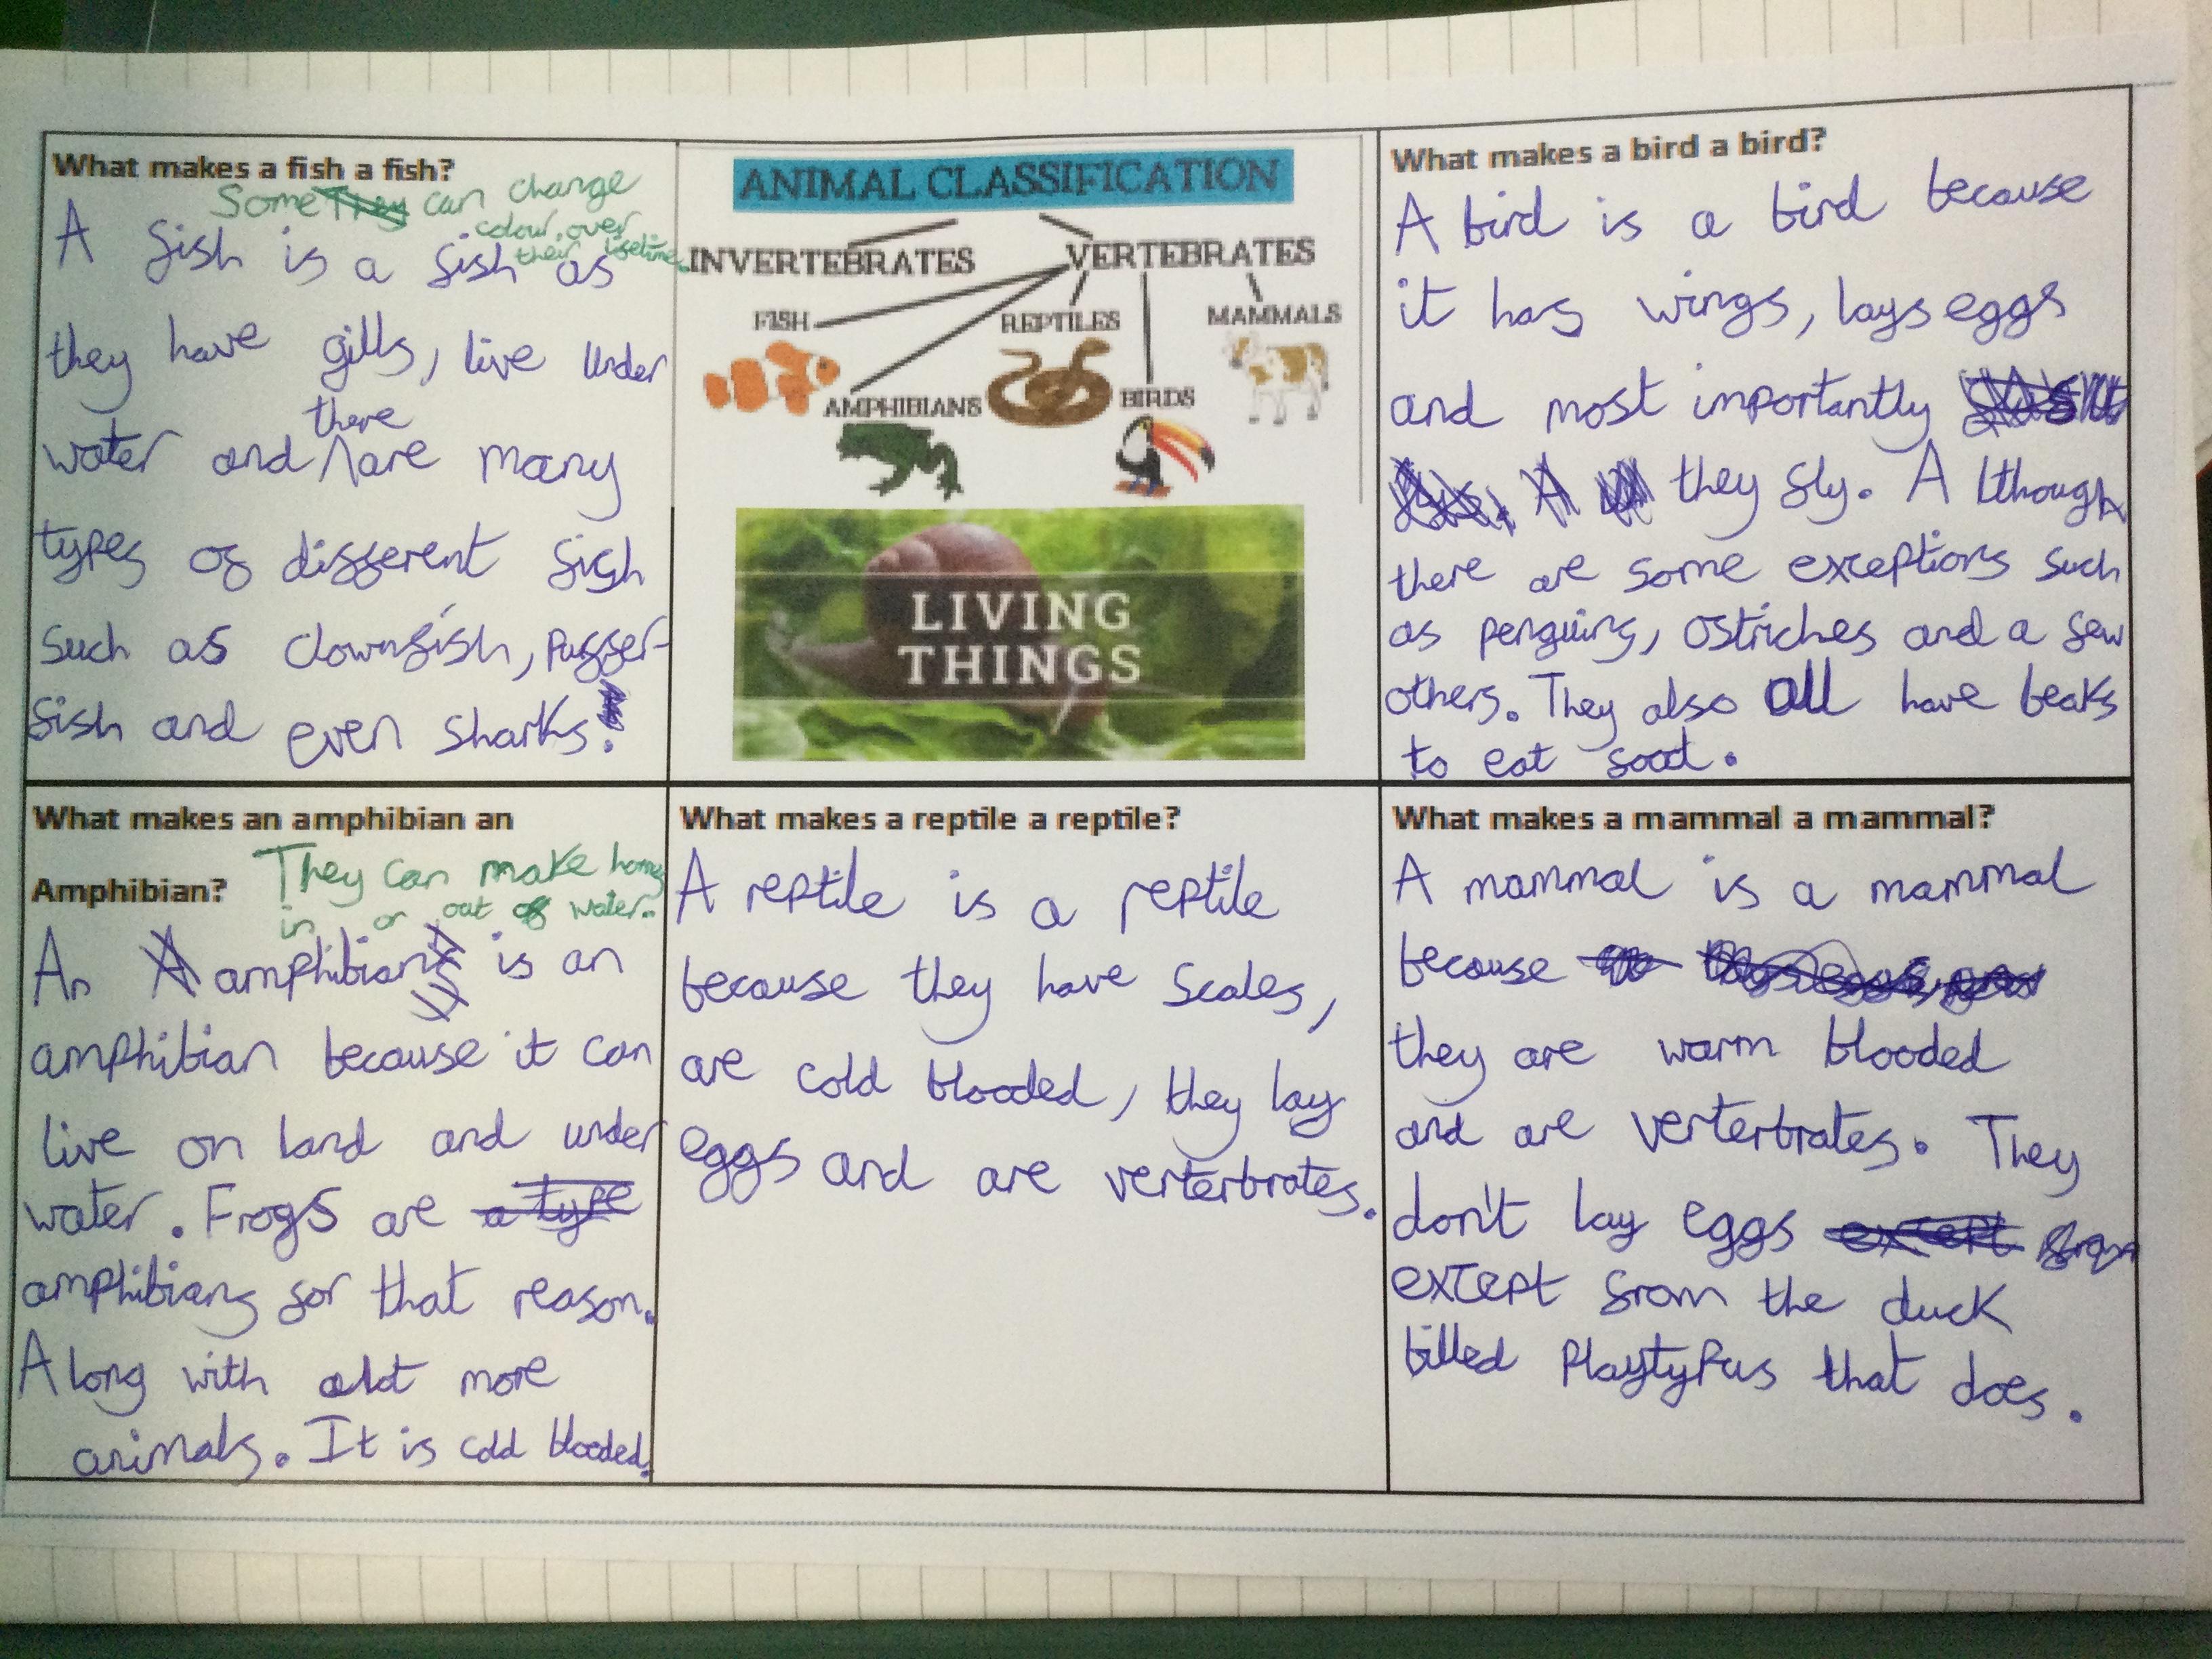 What makes a fish a fish?
Some can change
colour over
their lifetime.
A fish is a fish as
they have gills, live under
there
water and are many
types of different fish
such as clownfish, puffer-
fish and even sharks.
ANIMAL CLASSIFICATION
INVERTEBRATES VERTEBRATES
FISH REPTILES MAMMALS
AMPHIBIANS BIRDS
LIVING
THINGS
What makes a bird a bird?
A bird is a bird because
it has wings, lays eggs
and most importantly
they fly. Although
there are some exceptions such
as penguins, ostriches and a few
others. They also all have beaks
to eat food.
What makes an amphibian an
Amphibian?
They can make homes
in or out of water.
An amphibian is an
amphibian because it can
live on land and under
water. Frogs are a type
amphibians for that reason.
Along with alot more
animals. It is cold blooded.
What makes a reptile a reptile?
A reptile is a reptile
because they have scales,
are cold blooded, they lay
eggs and are verterbrates.
What makes a mammal a mammal?
A mammal is a mammal
because
they are warm blooded
and are verterbrates. They
don't lay eggs except
except from the duck
billed Playtypus that does.